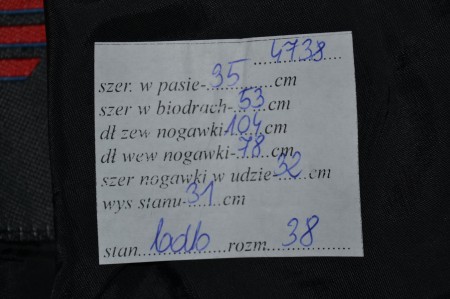 4738
szer. w pasie-35cm
szer w biodrach-53cm
dł zew nogawki104cm
dł wew nogawki-78cm
szer nogawki w udzie-32cm
wys stanu-31cm
stan bdb rozm. 38